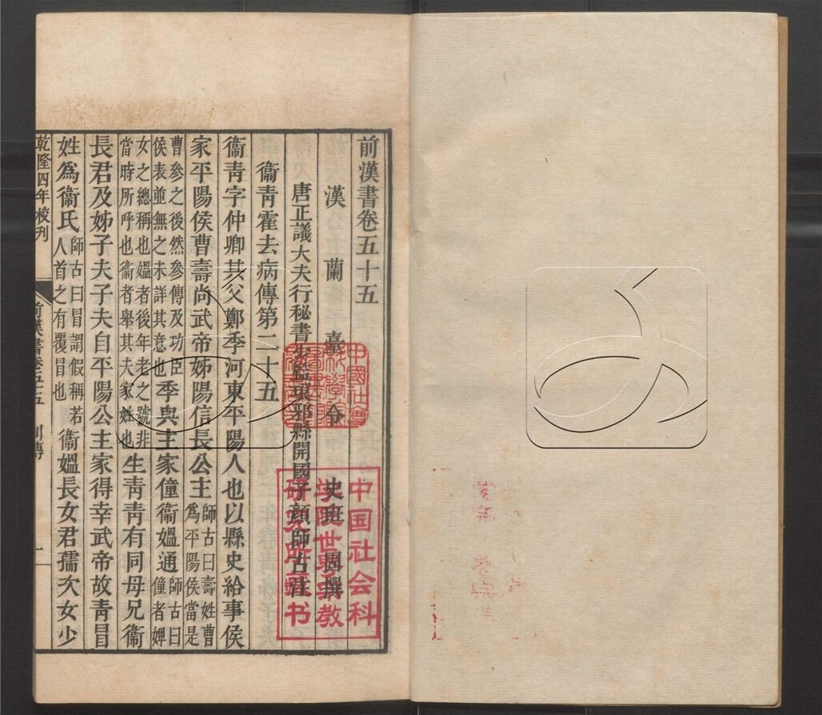 前漢書卷五十五
漢蘭臺令史班固撰
唐正議大夫行秘書少監琅邪縣開國子顏師古注
衞青霍去病傳第二十五
衞青字仲卿其父鄭季河東平陽人也以縣史給事侯
家平陽侯曹壽尚武帝姊陽信長公主師古曰壽姓曹爲平陽侯當是
曹參之後然參傳及功臣侯表並無之未詳其意也季與主家僮衞媼通師古曰僮者婢
女之總稱也媼者後年老之號非當時所呼也衞者舉其夫家姓也生青青有同母兄衞
長君及姊子夫子夫自平陽公主家得幸武帝故青冒
姓爲衞氏師古曰冒謂假稱若人首之有覆冒也衞媼長女君孺次女少
乾隆四年校刊
前漢書卷五十五 列傳 一
中国社会科
学院世界宗教
研究所藏书
中國社會